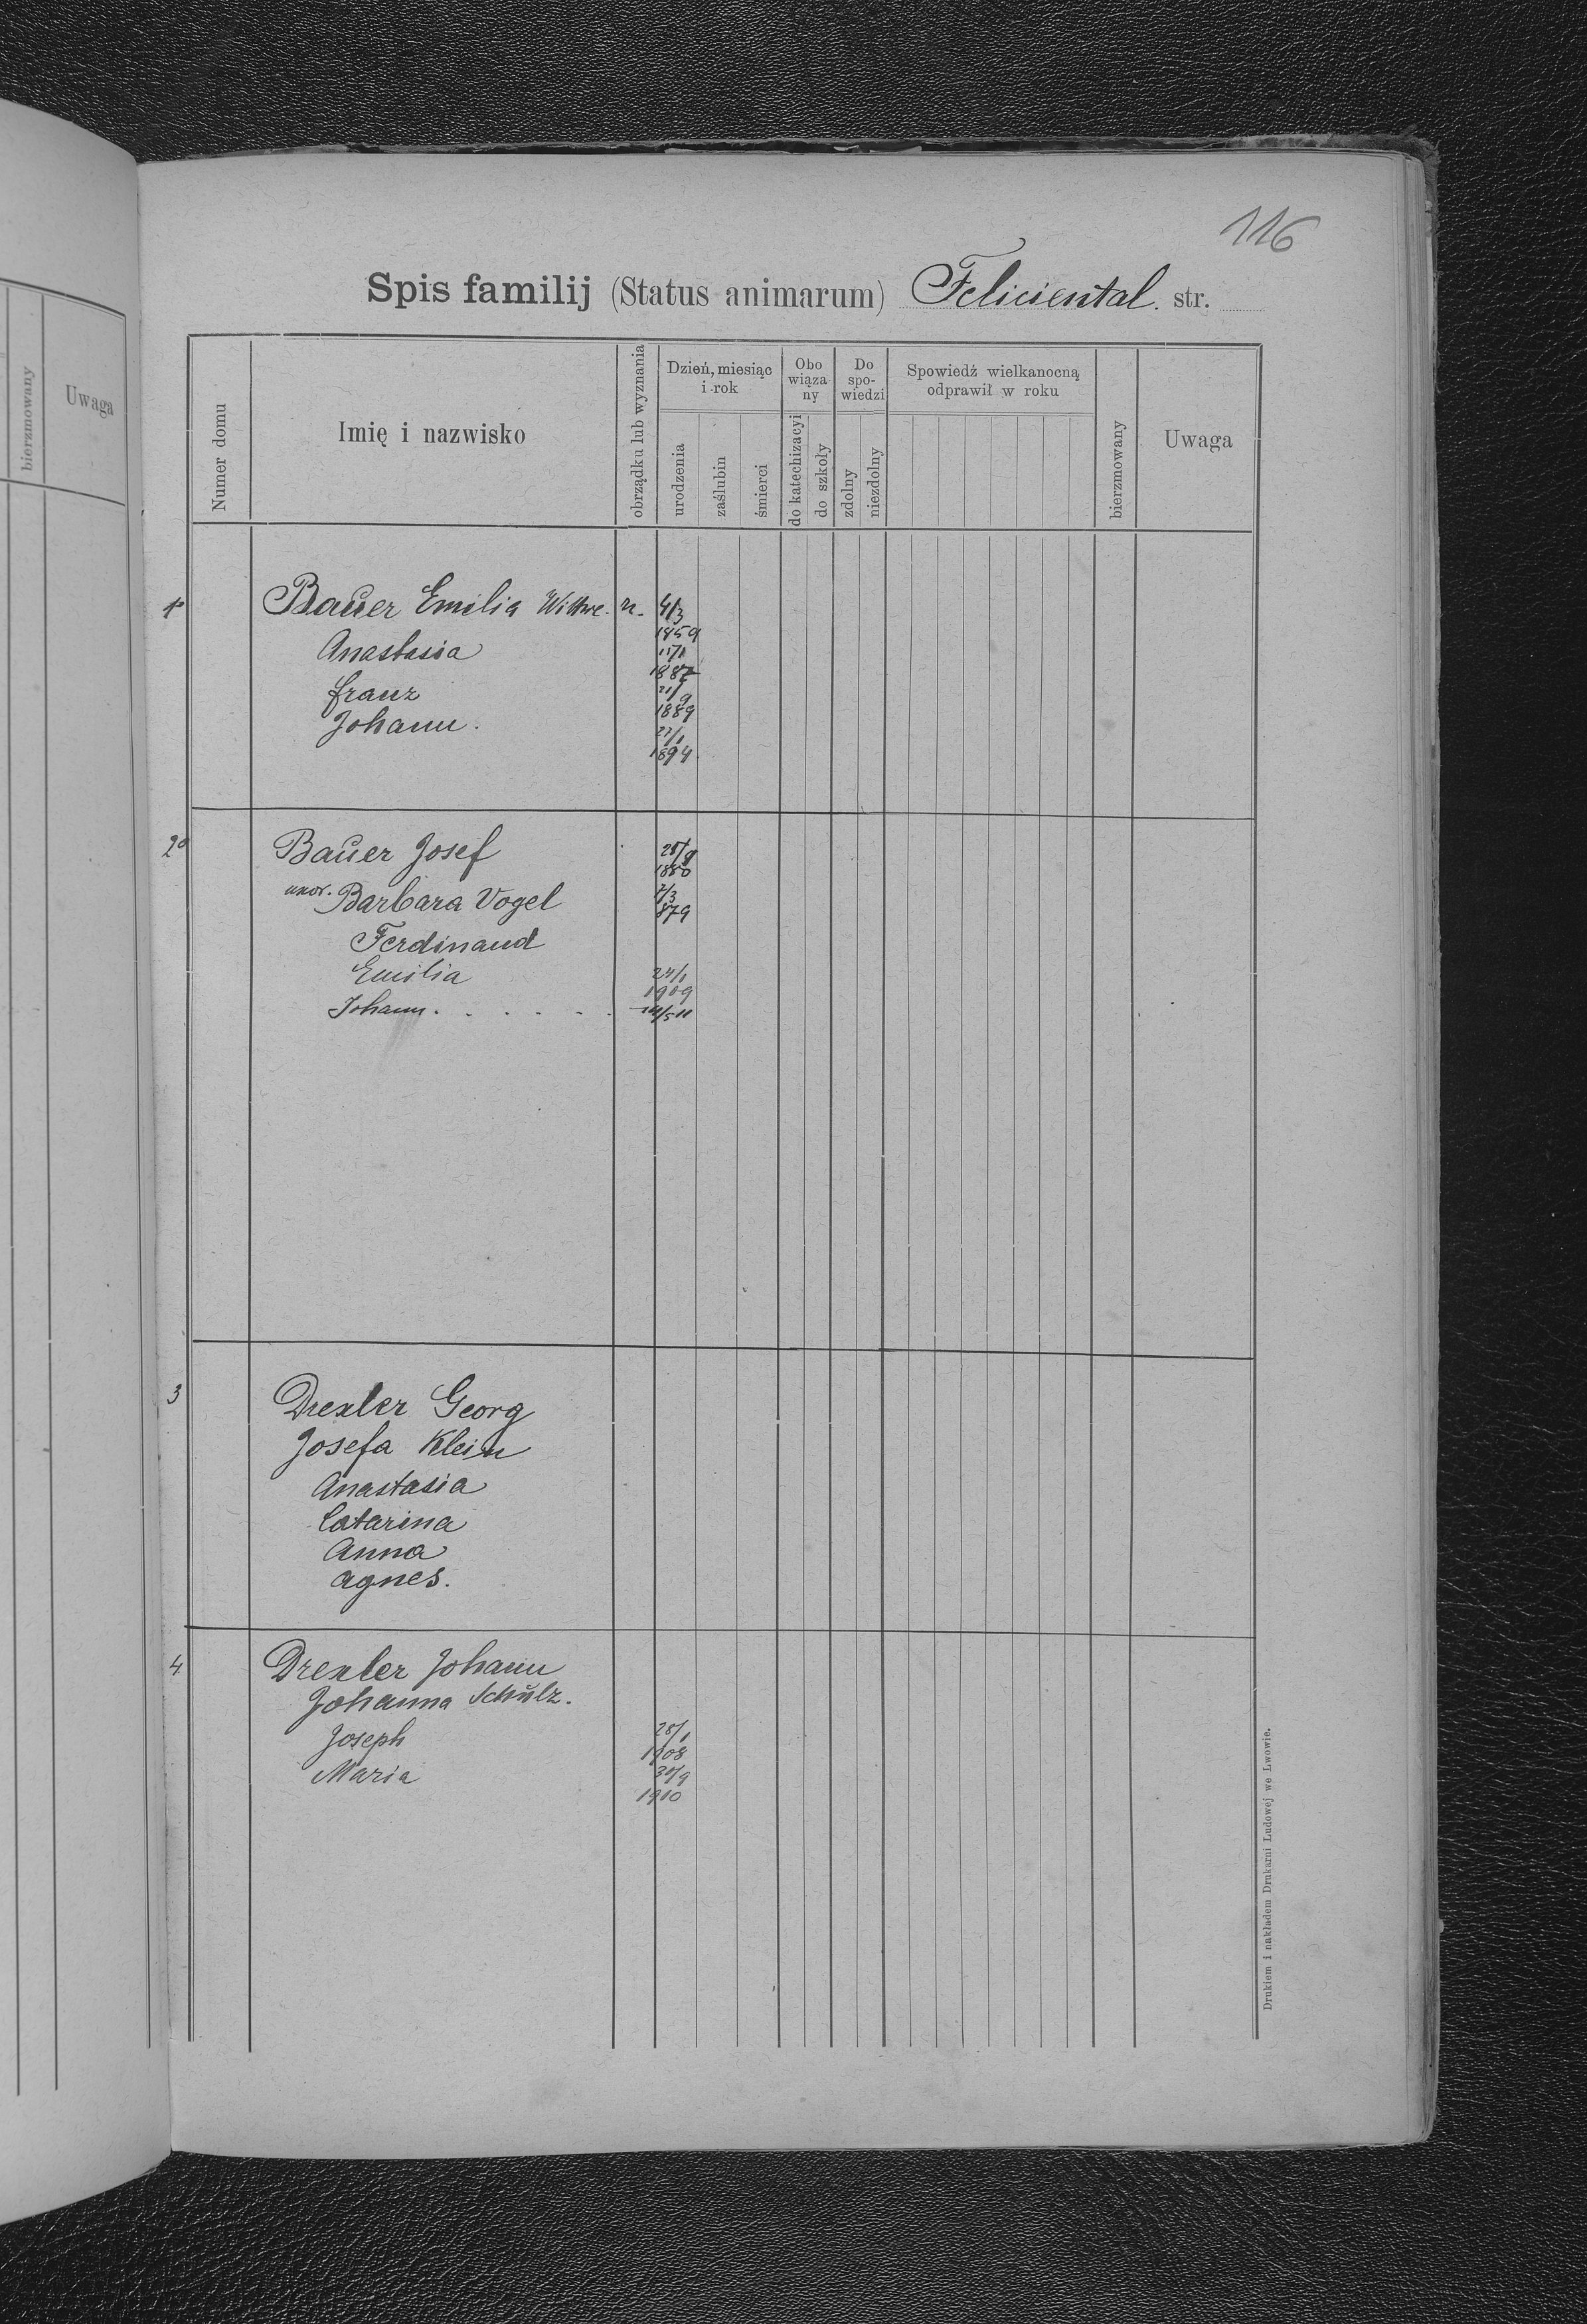 bierzmowany
Uwaga
116
Spis familij (Status animarum) Feliciental. str.
Numer domu
Imię i nazwisko
obrządku lub wyznania
Dzień, miesiąc
i rok
urodzenia
zaślubin
śmierci
Obo
wiąza
ny
do katechizacyi
do szkoły
Do
spo-
wiedzi
zdolny
niezdolny
Spowiedź wielkanocną
odprawił w roku
bierzmowany
Uwaga
Bauer Emilia Wittwe. 4/3
1859
Anastasia
franz 21/9
1889
Johann. 1894
Bauer Josef
1880
uxor. Barbara Vogel
879
Ferdinand
Emilia
1909
Johann . . . . . .
3
Drexler Georg
Josefa Klein
Anastasia
Catarina
Anna
Agnes.
4
Drexler Johann
Johanna Schulz.
Joseph 28/1
1908
Maria 30/9
1910
Drukiem i nakładem Drukarni Ludowej we Lwowie.